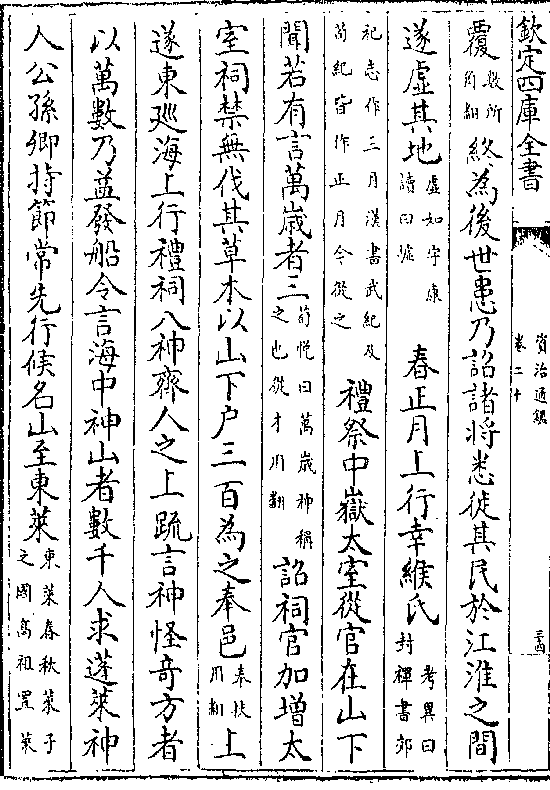 欽定四庫全書
資治通鑑
卷二十
覆數所角翻終為後世患乃詔諸將悉徙其民於江淮之間
遂虛其地虛如字康讀曰墟 春正月上行幸緱氏考異曰封禪書郊
祀志作三月漢書武紀及荀紀皆作正月今從之 禮祭中嶽太室從官在山下
聞若有言萬歳者三荀恱曰萬歳神稱之也從才用翻 詔祠官加增太
室祠禁無伐其草木以山下户三百為之奉邑奉扶用翻 上
遂東廵海上行禮祠八神齊人之上䟽言神怪奇方者
以萬數乃益發船令言海中神山者數千人求蓬萊神
人公孫卿持節常先行候名山至東萊東萊春秋萊子之國髙祖置萊